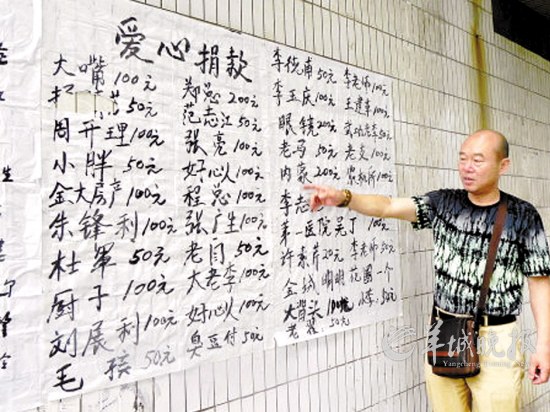 爱心捐款
大嘴100元
50元
周开理100元
小胖50元
金大房产100元
朱锋利100元
杜军50元
厨子100元
刘展利100元
毛孩50元
郑总200元
范志江50元
张亮100元
好心人100元
程总100元
张广生100元
老闫50元
大老李100元
好心人100元
臭豆付50元
李德甫50元 李老师100元
李玉庆100元 王建军100元
眼镜200元 武功老李50元
老马50元 老支100元
内蒙200元
李志
第一医院吴丁100元
许素芹20元 李老师50元
金城 明明花圈一个
大背头100元 50元
老 50元
羊城晚报